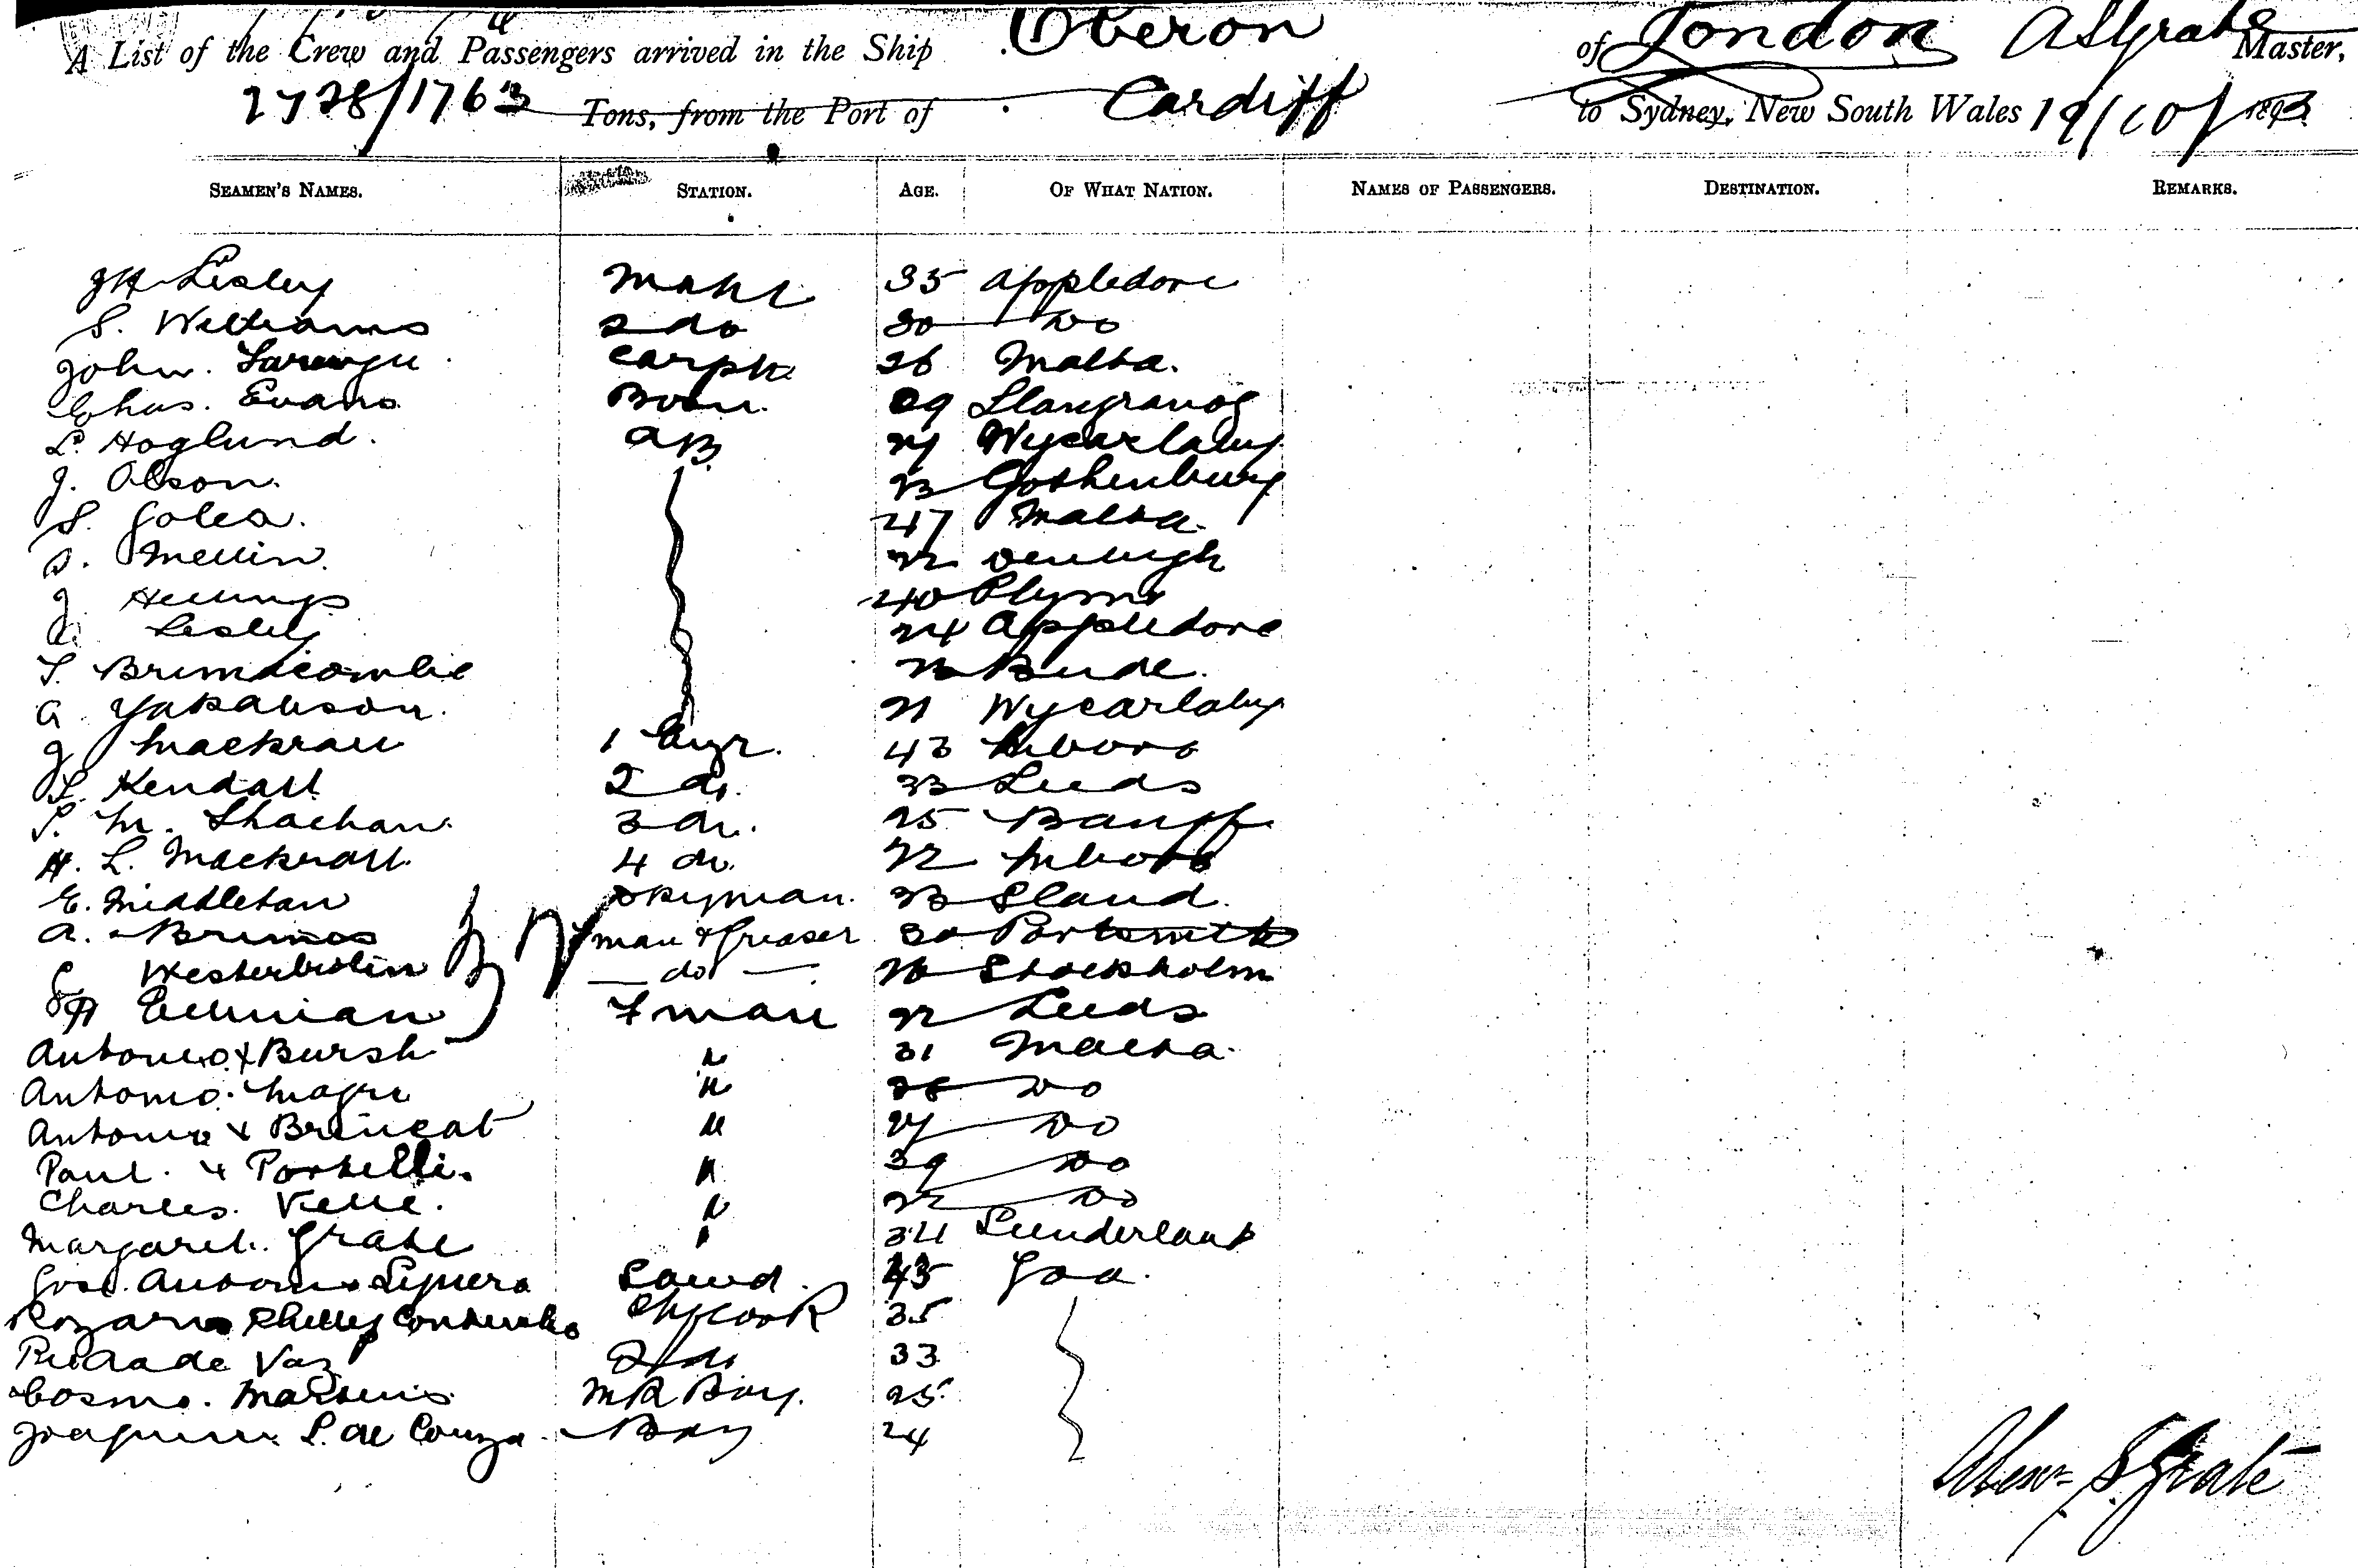 A List of the Crew and Passengers arrived in the Ship Oberon of London A S Grate Master,
2728/1763 Tons, from the Port of Cardiff to Sydney, New South Wales 19/10/1893
SEAMEN'S NAMES. STATION. AGE. OF WHAT NATION. NAMES OF PASSENGERS. DESTINATION. REMARKS.
JH Lesley Mate 35 Appledore
S. Williams 2 do 30 Do
John. carpt 26 Malta.
Chas. Evans Bosn. 29 Llangranog
L. Hoglund. AB. Wycarlaby
J. Olson. 23 Gothenburg
S. Golea. 47 Malta.
S. Mellin. 22 Denbigh
J Hellings 40 Plymth
Lesley 24 Appledore
S. Brimacombe Bude.
A. Yakabson. 21 Wycarlaby
J Mackrall 1 Engr. 43 Mboro
S. Kendall 2 do. 33 Leeds
P. M. Shachan. 3 do. 25 Banff
H. L. Mackrall. 4 do. 22 Mboro
E. Middleton Dkyman. 33 Sland.
A. Fman & Greaser 30 Portsmth
do Stockholm
Fman 22 Leeds
Antonio x Bursh " 31 Malta.
Antonio. Magri " 26 Do
Antonio x Brincat " 27 Do
Paul. x Portelli. " 39 Do
Charles. Velle. " 22 Do
Margaret. Grate " 34 Sunderland
Jose. Antonio Stewd. 43 Goa.
Rozario Chfcook 35
Vaz 2 do 33
Cosmo. Martins MR Boy. 25
Joaquim. S. de Couza. Boy 24
Alexr S. Grate